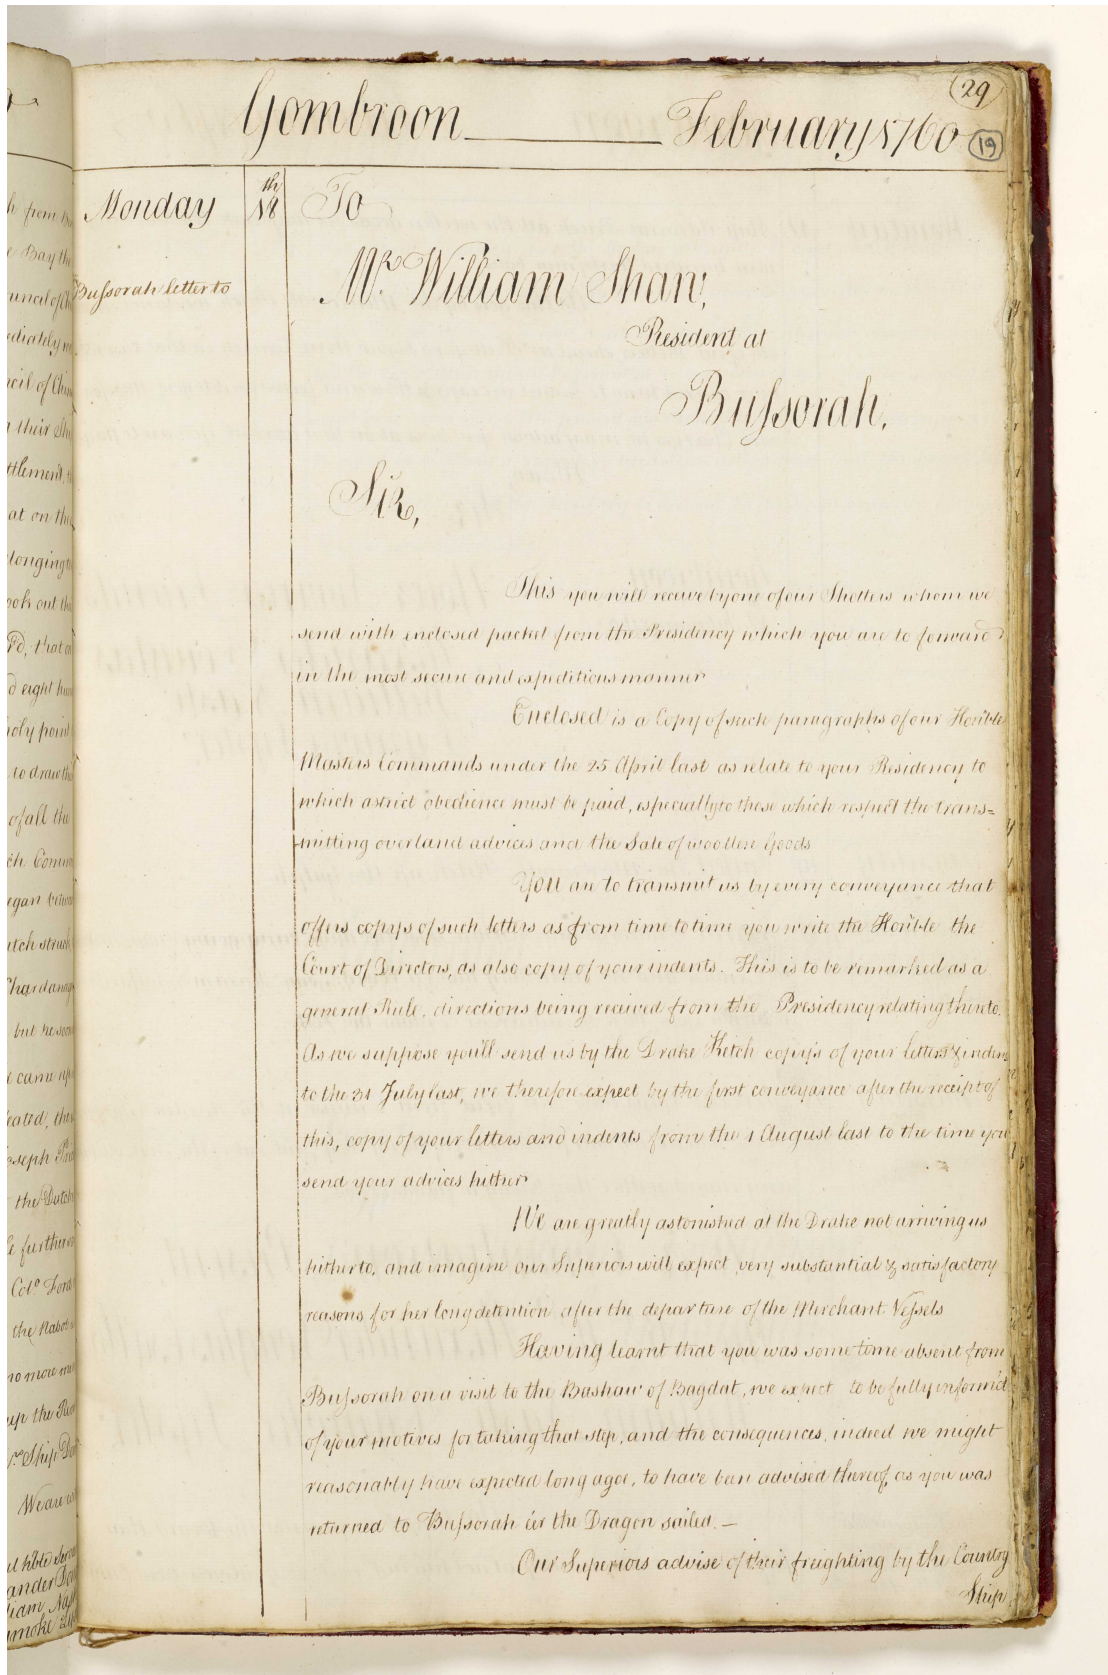 29
Gombroon February 1760
19
Monday 18th To
Bussorah letter to
Mr. William Shaw,
Resident at
Bussorah.
Sir,
This you will receive by one of our Shotters whom we
send with enclosed packet from the Presidency which you are to forward
in the most secure and expeditious manner
Enclosed is a Copy of such paragraphs of our Honble
Masters Commands under the 25 April last as relate to your Residency to
which astrict obedience must be paid, especially to those which respect the trans=
mitting overland advices and the Sale of woollen Goods
You are to transmit us by every conveyance that
offers copys of such letters as from time to time you write the Honble the
Court of Directors, as also copy of your indents. This is to be remarked as a
general Rule, directions being received from the Presidency relating thereto.
As we suppose you'll send us by the Drake Ketch copys of your letters & indents
to the 31 July last, we therefore expect by the first conveyance after the receipt of
this, copy of your letters and indents from the 1 August last to the time you
send your advices hither
We are greatly astonished at the Drake not arriving us
hitherto, and imagine our Superiors will expect very substantial & satisfactory
reasons for her long detention after the departure of the Merchant Vessels
Having learnt that you was some time absent from
Bussorah on a visit to the Bashaw of Bagdat, we expect to be fully inform'd
of your motives for taking that step, and the consequences, indeed we might
reasonably have expected long agoe, to have been advised thereof, as you was
returned to Bussorah e'er the Dragon sailed. —
Our Superiors advise of their freighting by the Country
Ship